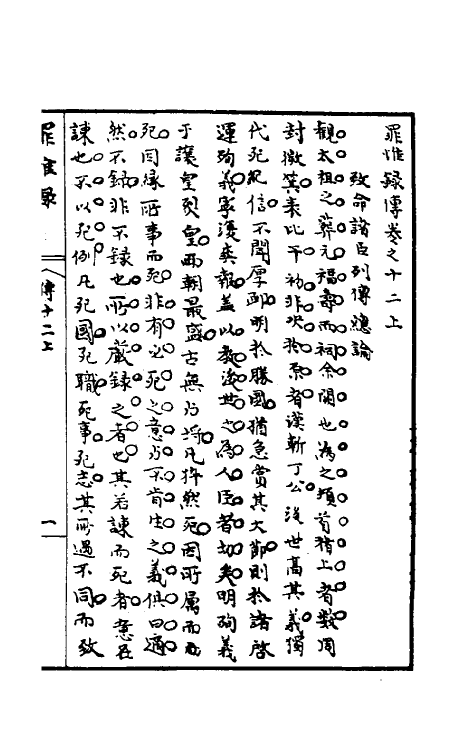 罪惟錄傳卷之十二上
致命諸臣列傳總論
觀太祖之葬元福壽而祠余闕也為之頓首稽上者數周
封微箕表比干初非吹於忝者漢斬丁公後世高其義獨
代死紀信不聞厚卹明於勝國猶急賞其大節則於諸啓
運殉義寧漠無報蓋以教後世之為人臣者切矣明殉義
于讓皇烈皇兩朝最盛古無與埒凡捽然死因所屬而死
死因緣所事而死非有必死之意與不肯生之義俱曰適
然不錄非不錄也所以嚴錄之者也其若諫而死者意在
諫也不以死例凡死國死職死事死志其所遇不同而致
罪惟錄
傳十二上
一